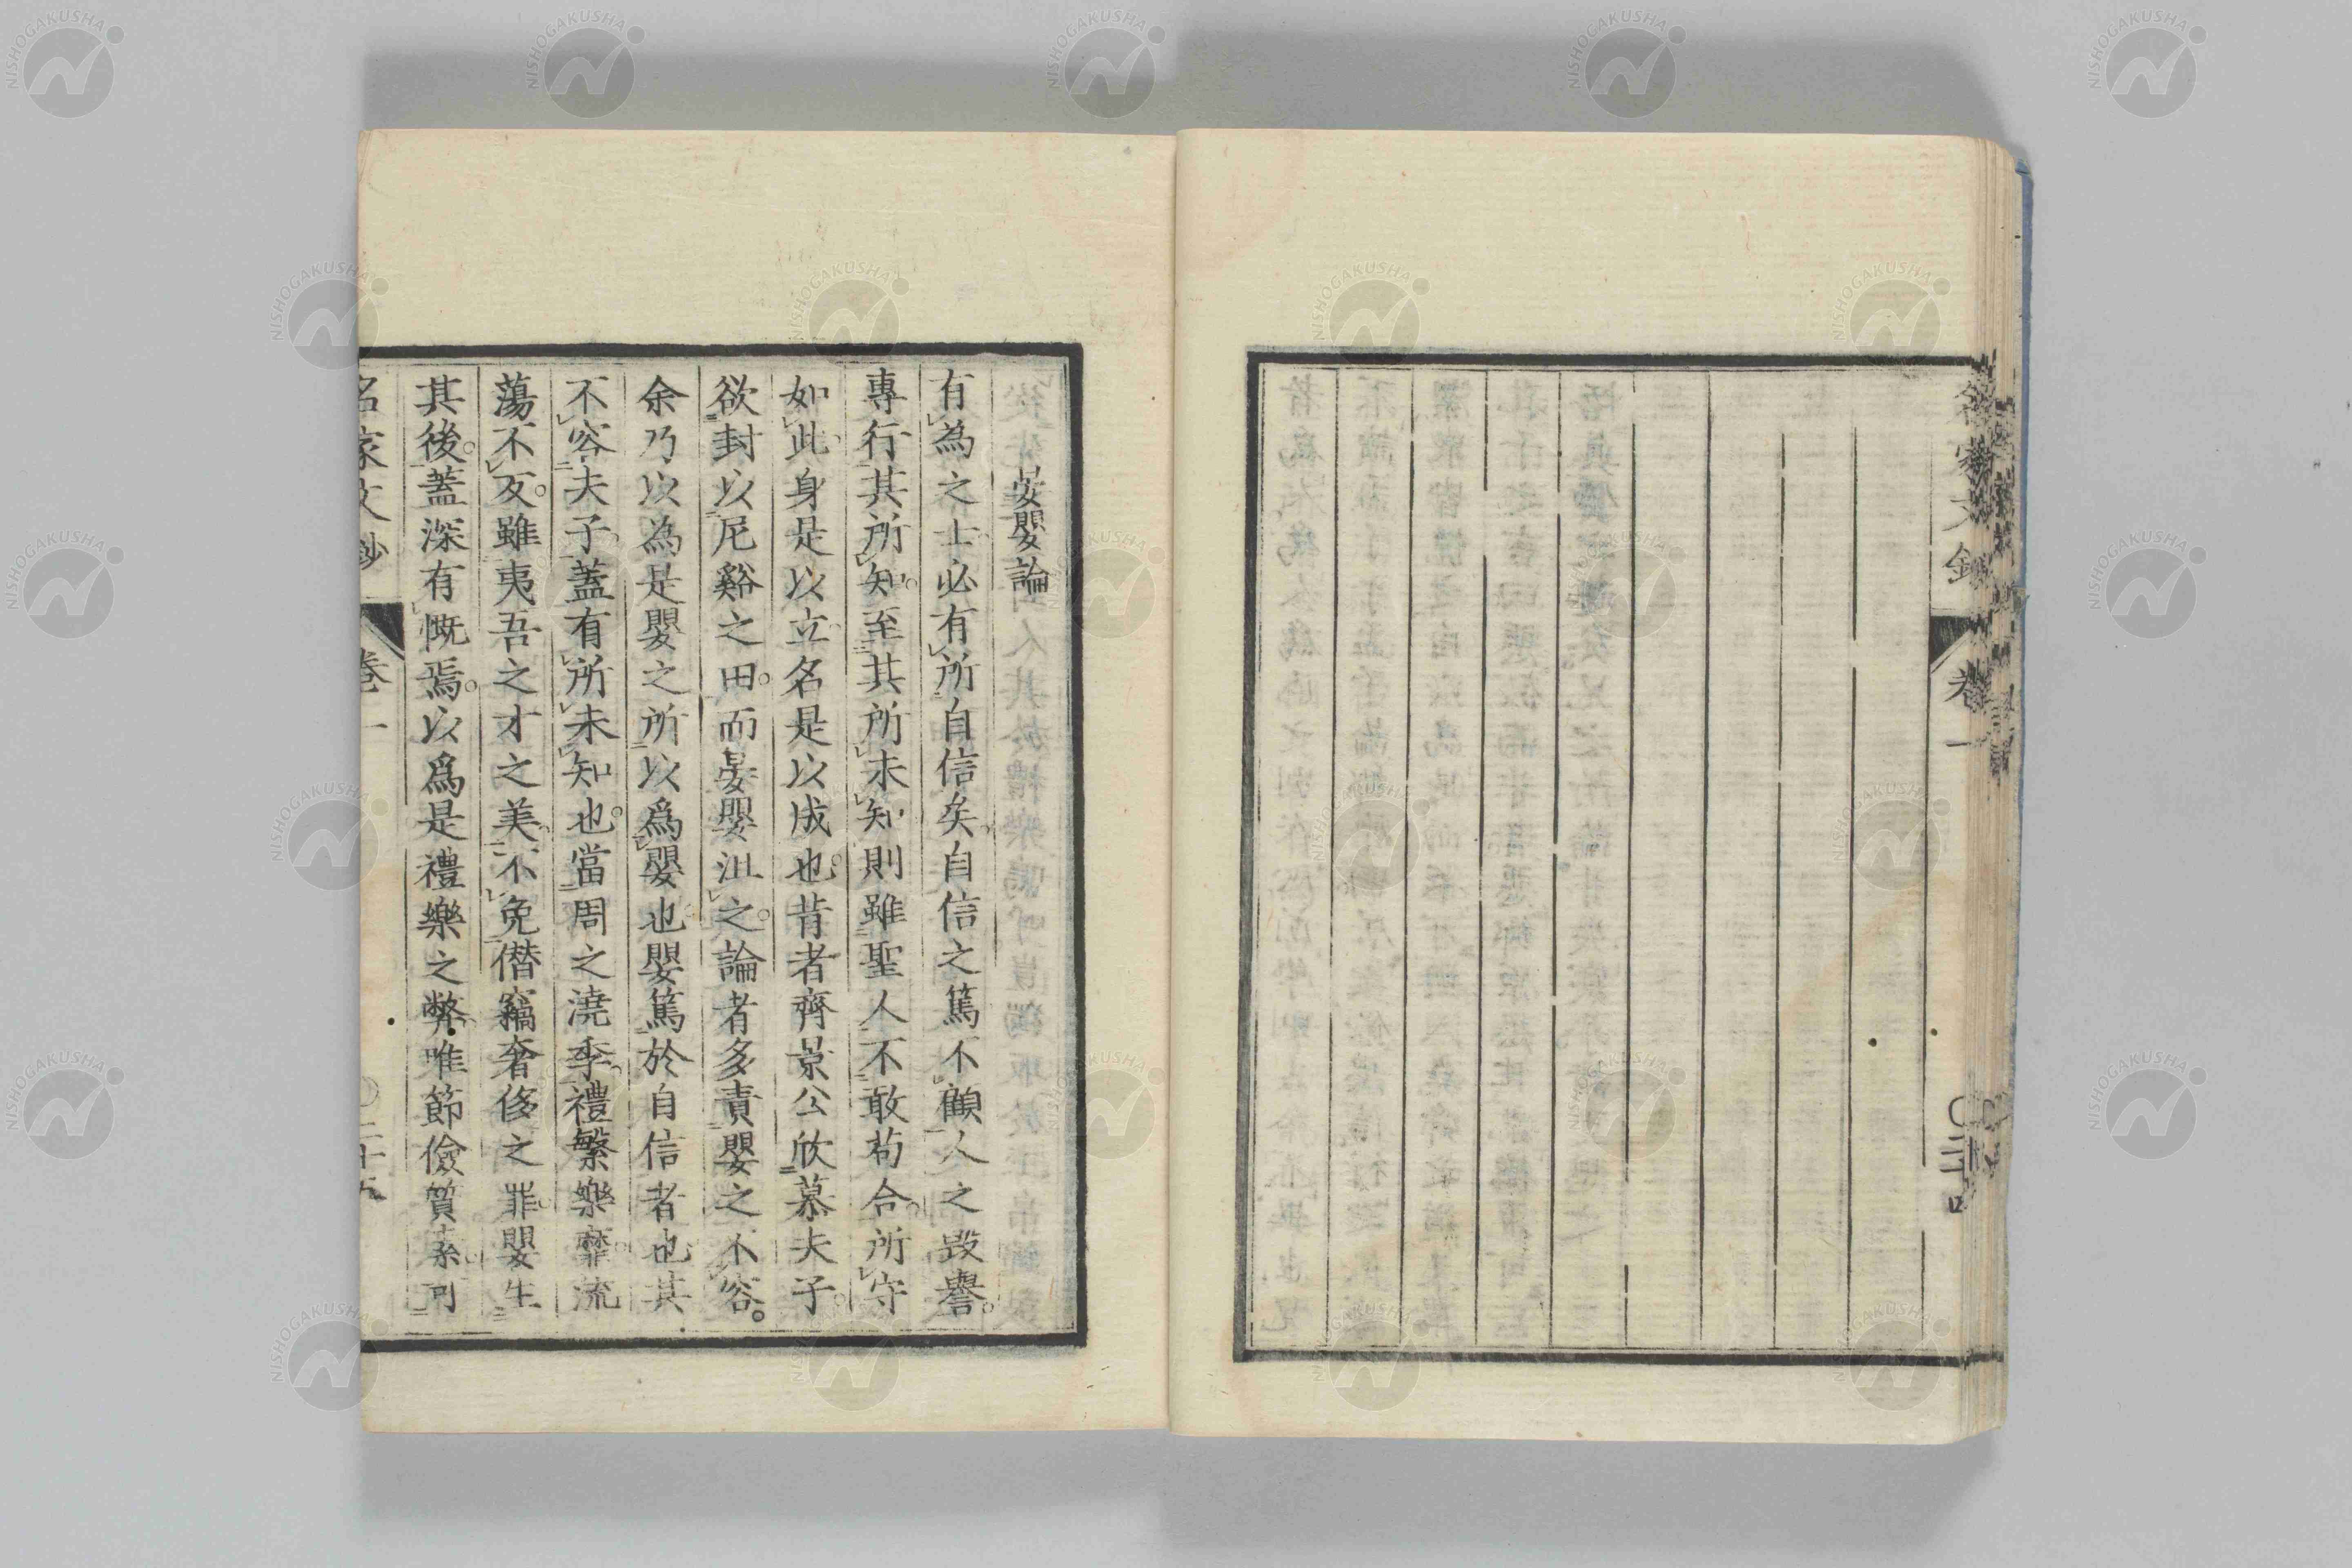 名家文鈔 卷一 〇二十四
晏嬰論
有為之士必有所自信矣自信之篤不顧人之毀譽。
專行其所知。至其所未知則雖聖人不敢苟合。所守
如此身是以立名是以成也。昔者齊景公欣慕夫子
欲封以尼谿之田。而晏嬰沮之。論者多責嬰之不容。
余乃以為是嬰之所以爲嬰也嬰篤於自信者也其
不容夫子蓋有所未知也。當周之澆季禮繁樂靡。流
蕩不反。雖夷吾之才之美不免僭竊奢侈之罪嬰生
其後。蓋深有慨焉。以爲是禮樂之弊唯節儉質素可
名家文鈔 卷一 〇二十五
NISHOGAKUSHA